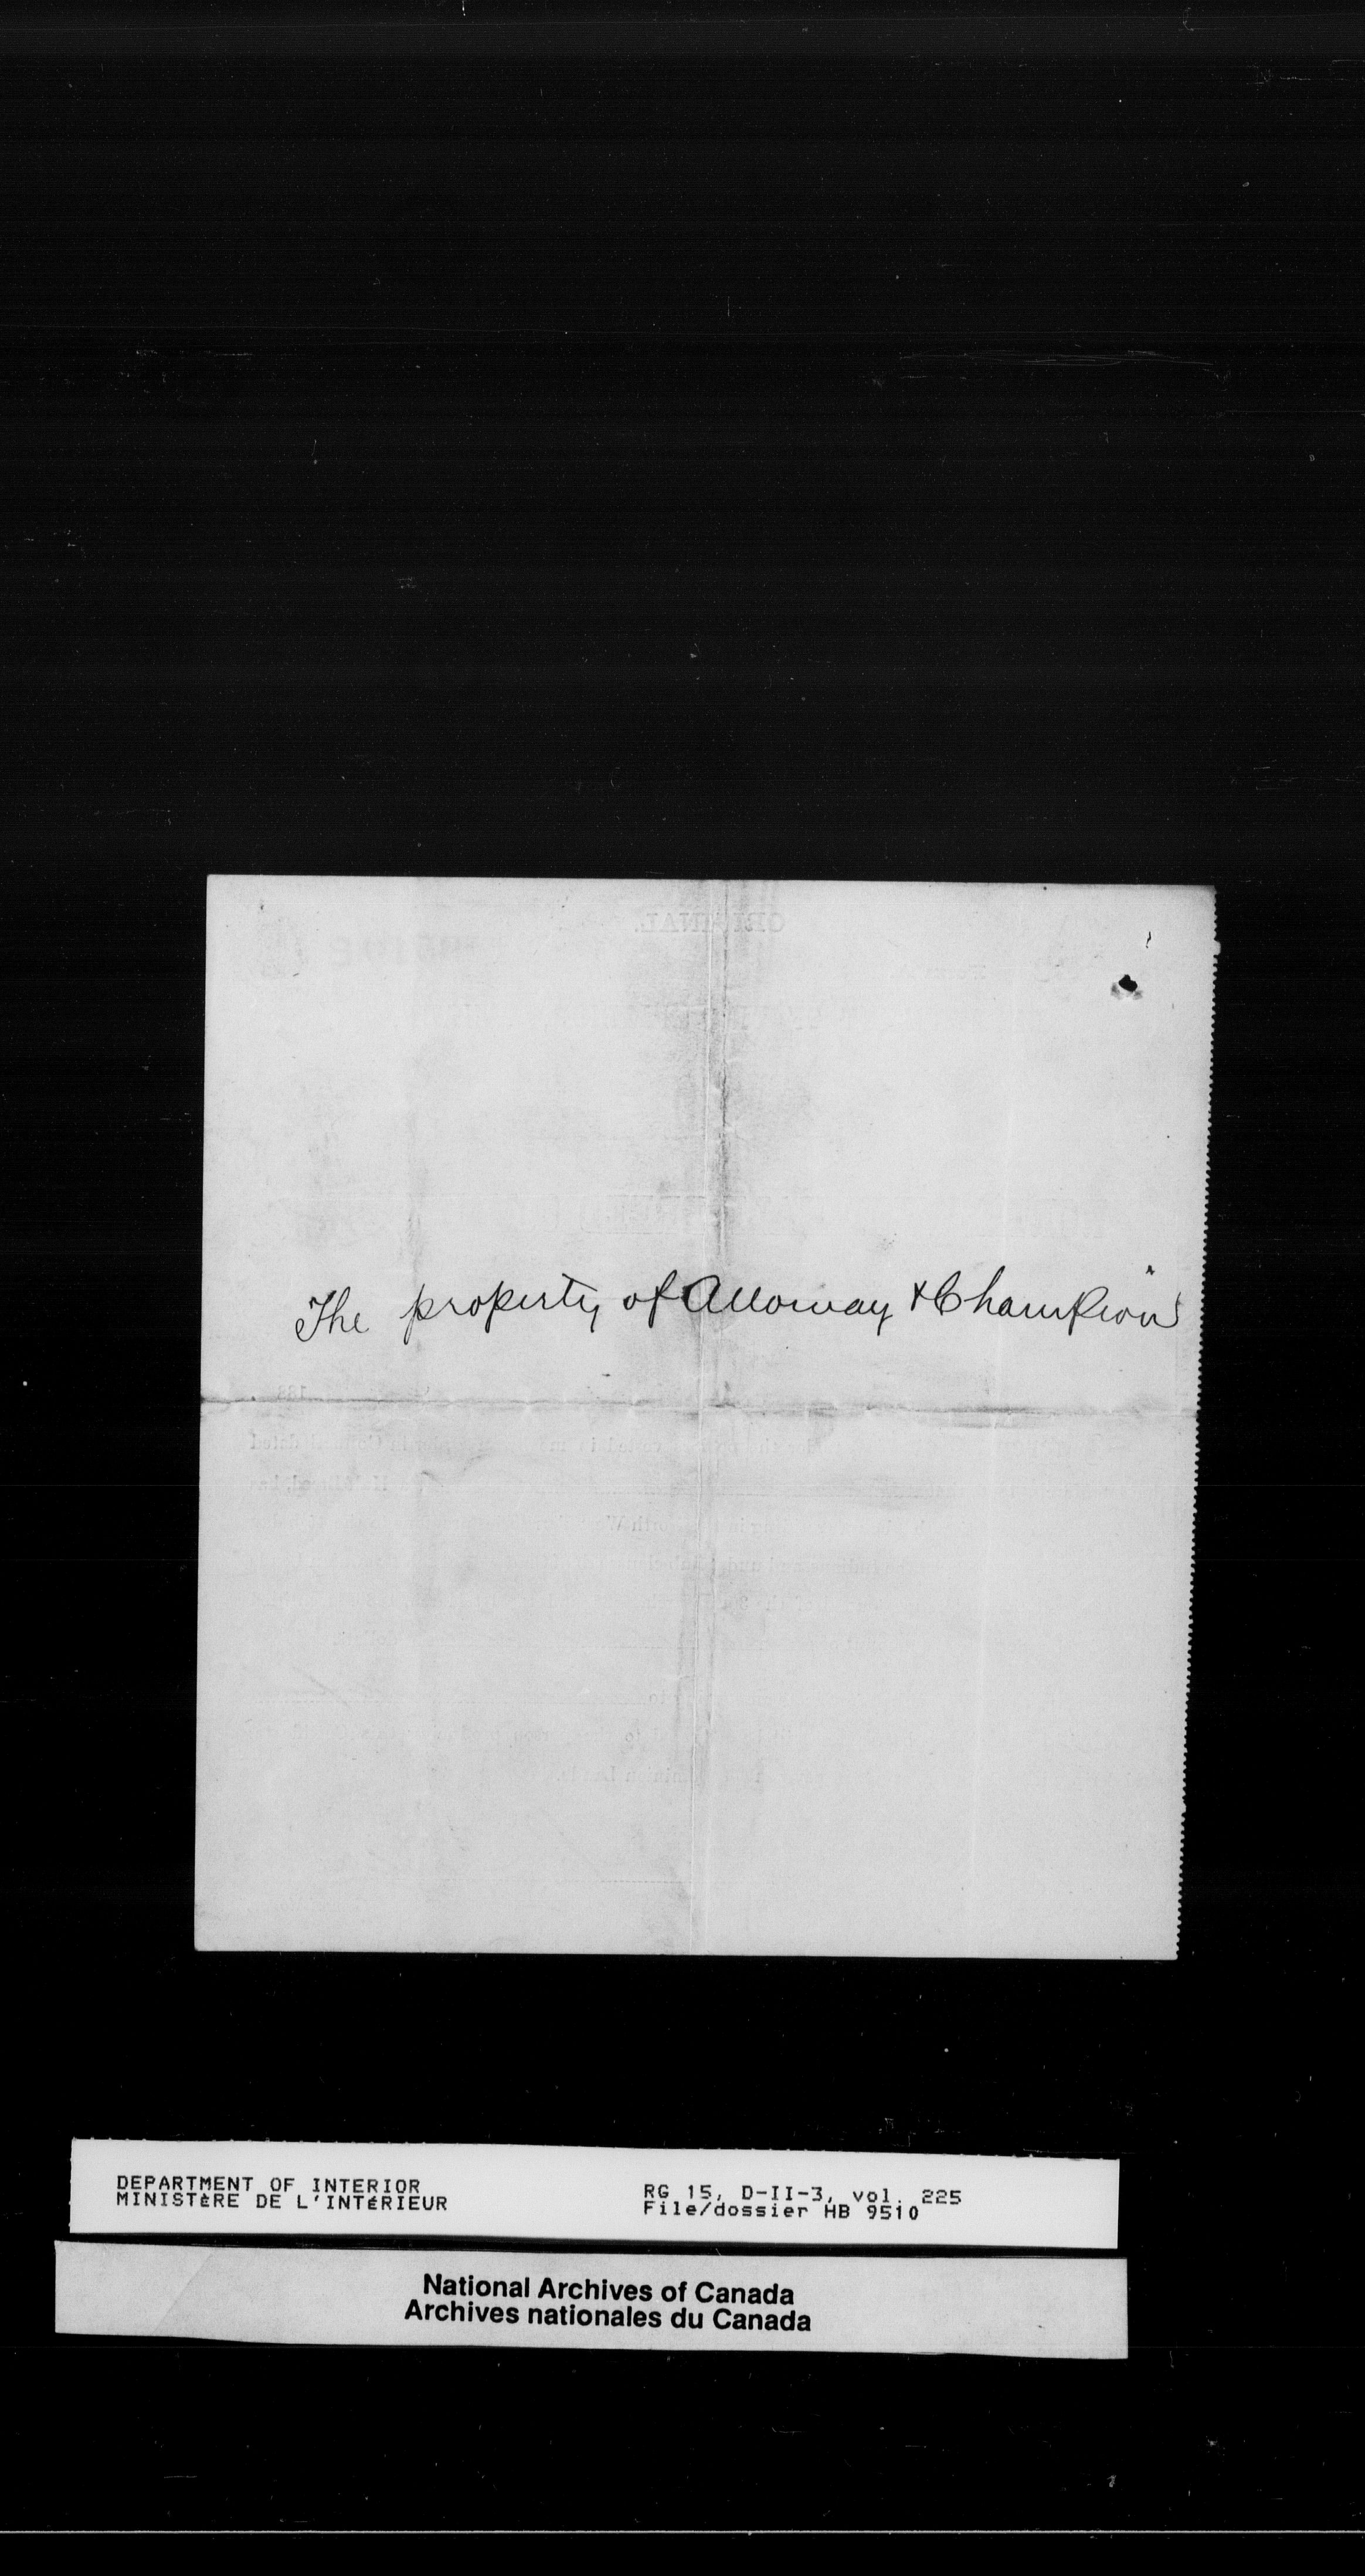 ORIGINAL.
The property of Alloway & Champion
DEPARTMENT OF INTERIOR
MINISTÈRE DE L'INTÉRIEUR
RG 15, D-II-3, vol. 225
File/dossier HB 9510
National Archives of Canada
Archives nationales du Canada